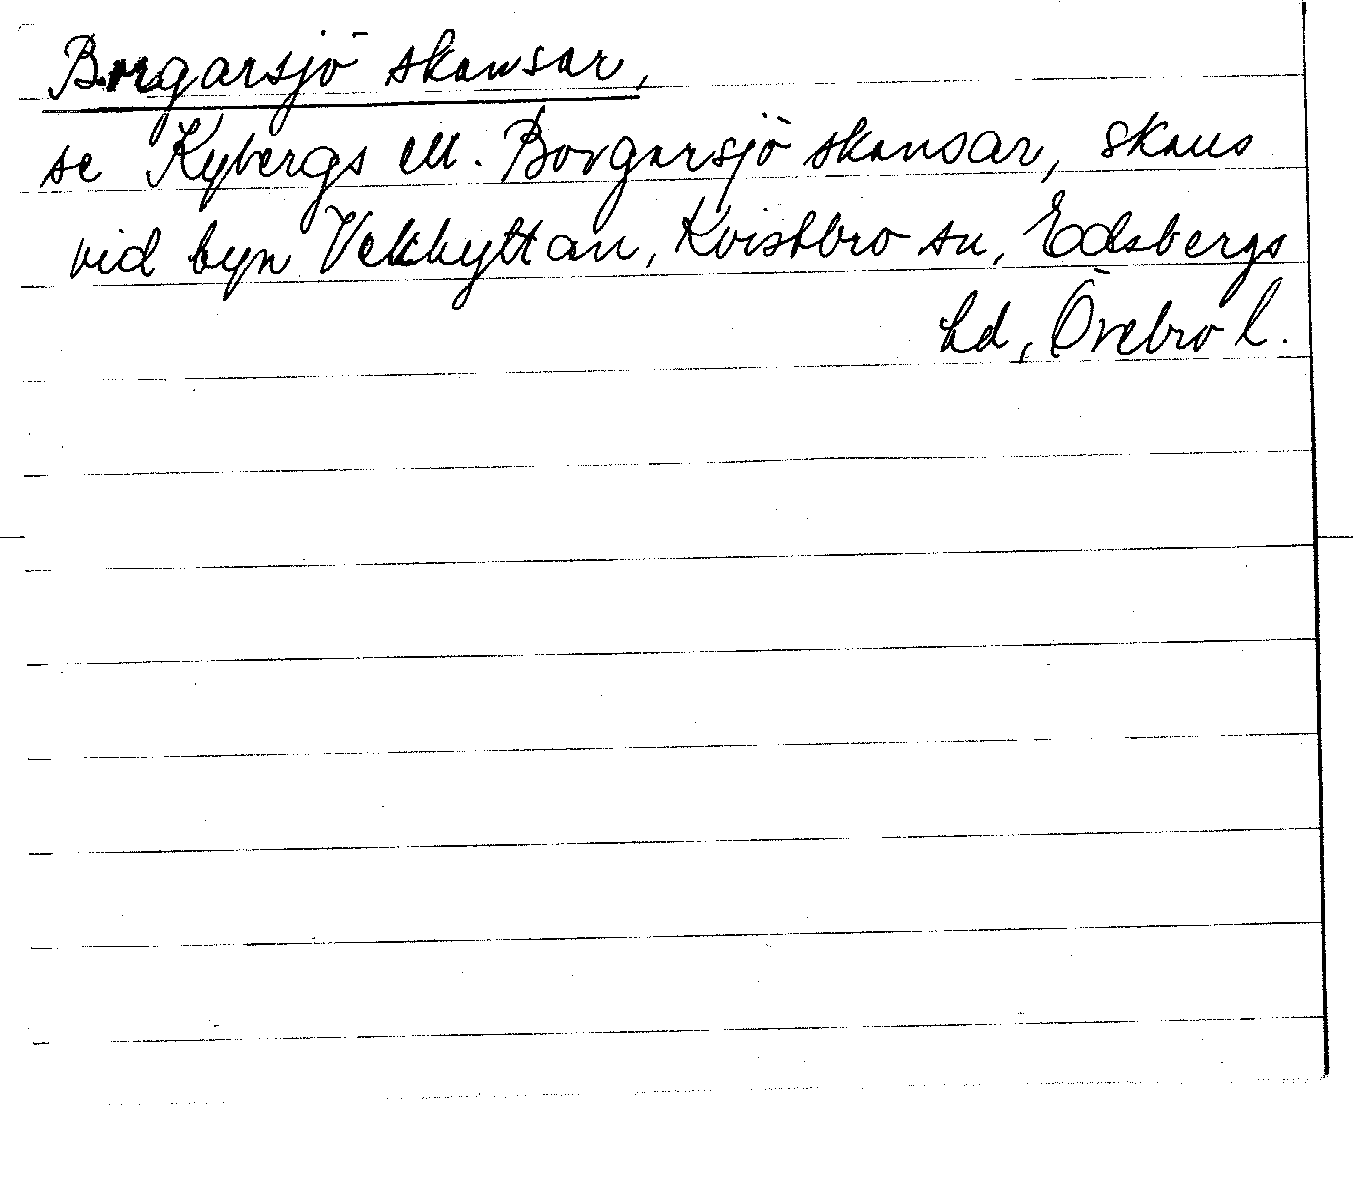 Borgarsjö skansar,
se Kybergs ell. Borgarsjö skansar, skans
vid byn Vekhyttan, Kvistbro sn, Edsbergs
hd, Örebro l.